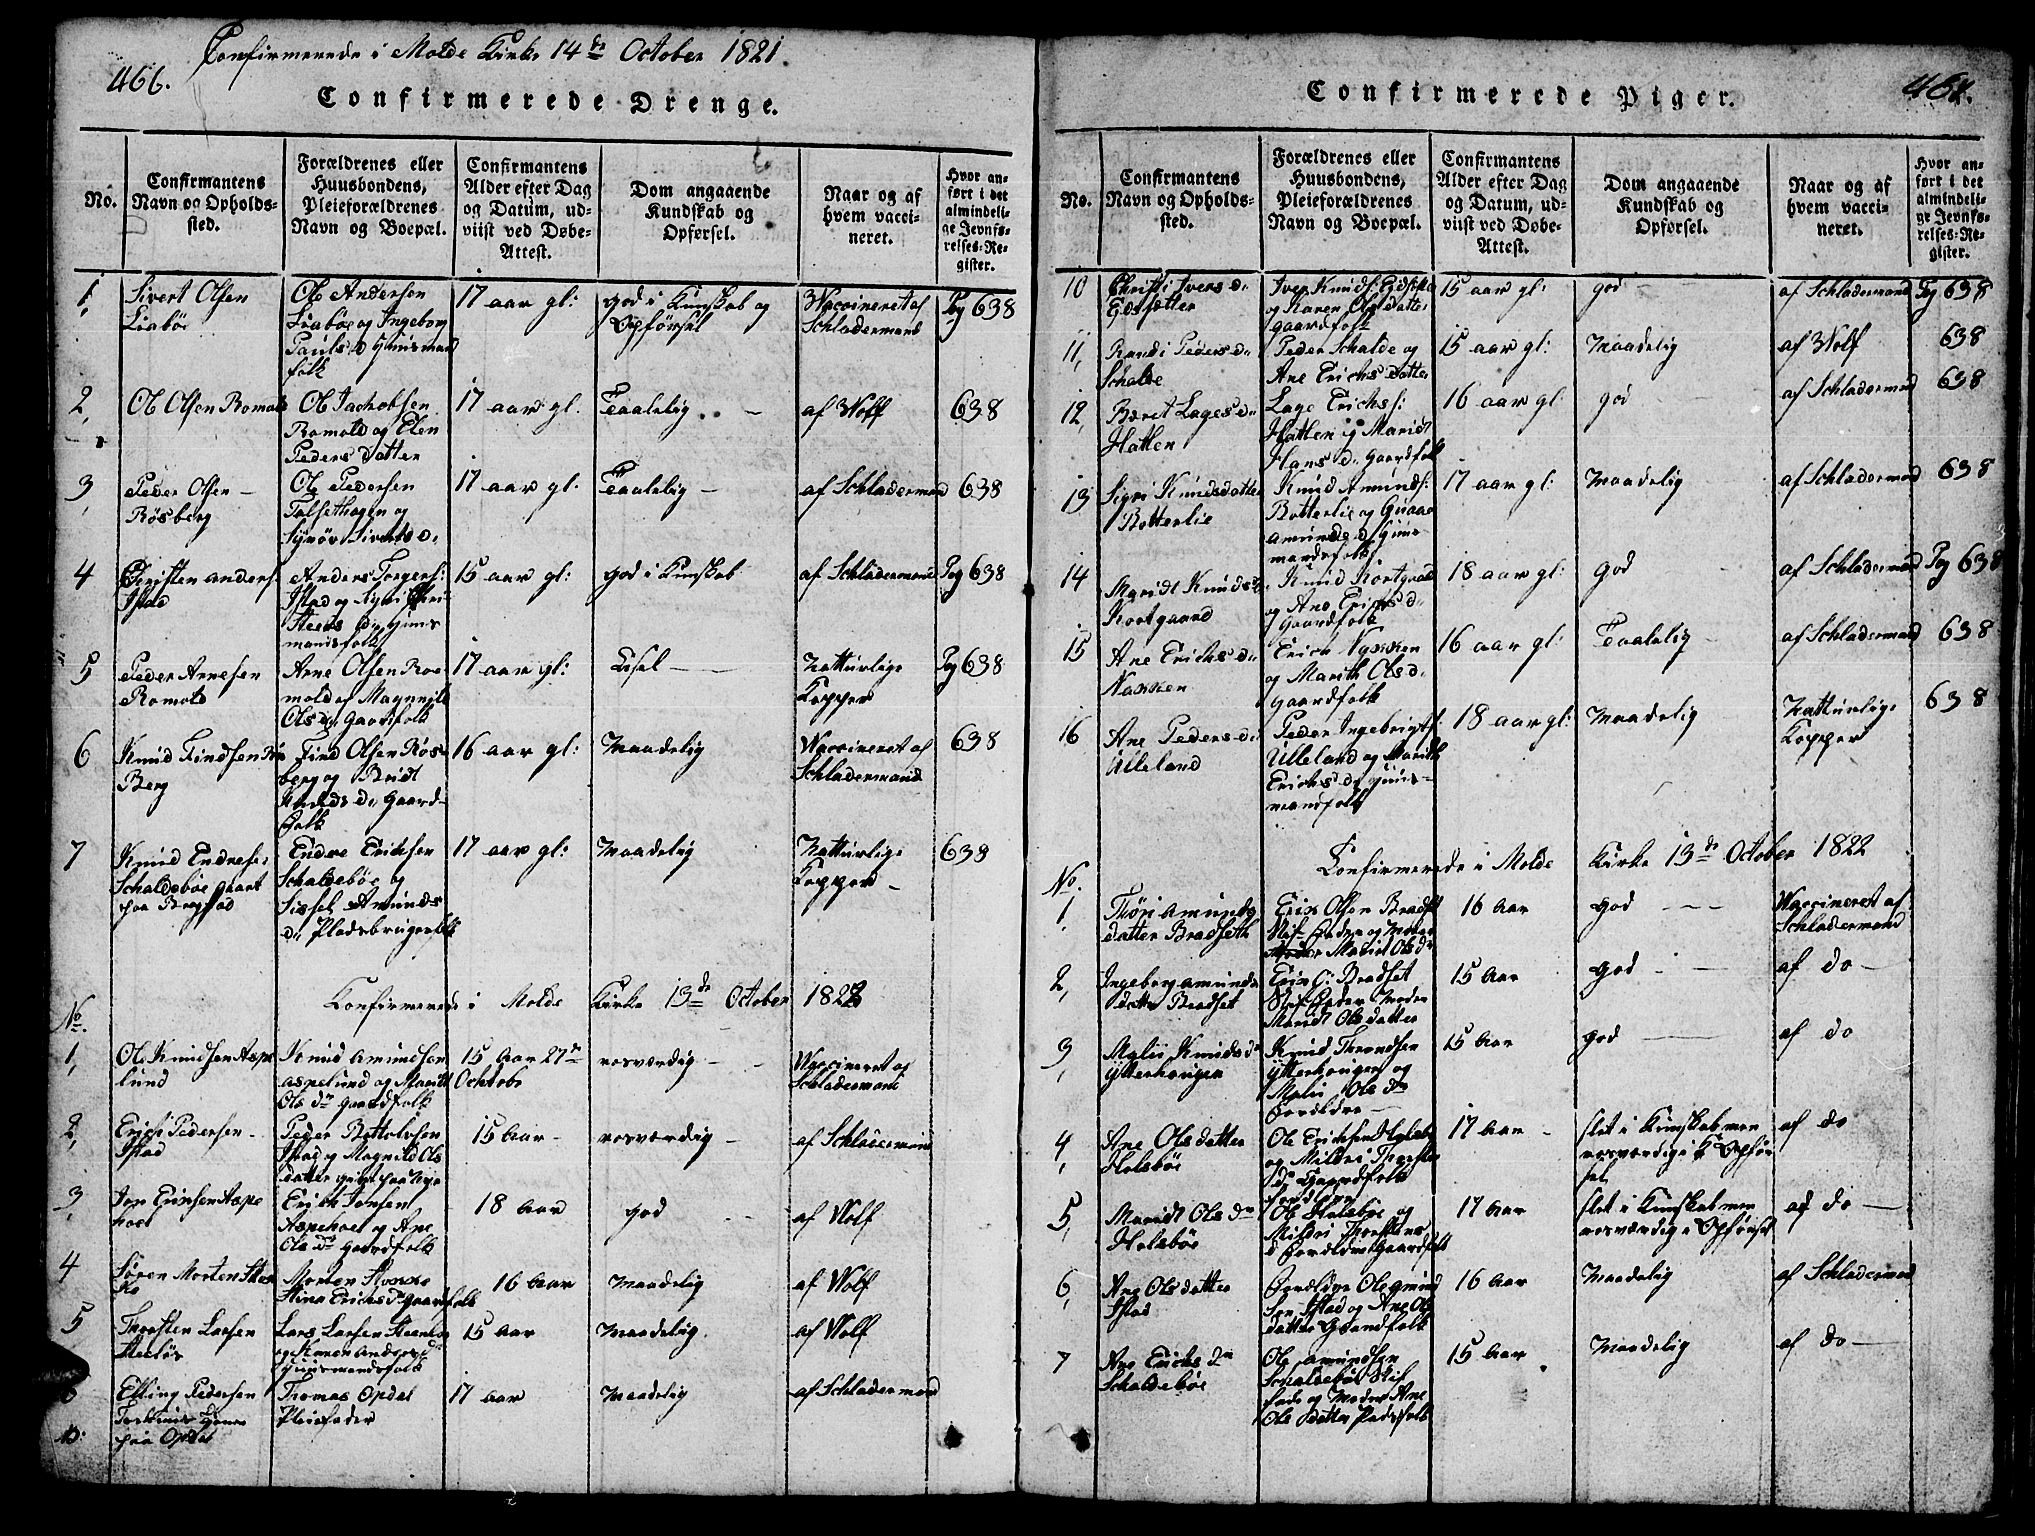 Confirmerede i Molde Kirke 14de October 1821.
466.
Confirmerede Drenge.
No.
Confirmantens
Navn og Opholds-
sted.
Forældrenes eller
Huusbondens,
Pleieforældrenes
Navn og Boepæl.
Confirmantens
Alder efter Dag
og Datum, ud-
viist ved Døbe-
Attest.
Dom angaaende
Kundskab og
Opførsel.
Naar og af
hvem vacci-
neret.
Hvor an-
ført i det
almindeli-
ge Jevnfø-
relses-Re-
gister.
1,
Sivert Olsen
Liabøe
Ole Andersen
Liabøe og Ingeborg
Pauls D. Huusmand
folk
17 aar gl:
god i Kunskab og
Opførsel
Waccineret af
Schladermand
Pag 638
2,
Ole Olsen Romola
Ole Jachobsen
Romold og Elen
Peders datter
17 aar gl.
Taalelig
af Wolf
638
3,
Peder Olsen
Røsberg
Ole Pedersen
Talsethagen og
Synøv Siverts D.
17 aar gl.
Taalelig
af Schladermand
638
4
Christen anders:
Istad
Anders Torgers:
Istad og Sigri Chri-
steds D. Huus
mandsfolk
15 aar gl:
god i Kunskab
af Schladermand
Pag 638
5
Peder Arnesen
Romold
Arne Olsen Ro-
mold og Magnild
Ols D. Gaardfolk
17 aar gl:
Lisel
Natturlige
Kopper
Pag 638
6
Knud Findsen Røs
Berg
Find Olsen Røs-
berg og Brridt
Knuds D. Gaard-
folk
16 aar gl:
Maadelig
Waccineret af
Schladermand
638
7
Knud Endresen
Schaldebøe
paa Bergstad
Endre Erichsen
Schaldebøe og
Sissel Amunds
D. Pladsbrugerfolk
17 aar gl:
Maadelig
Natturlige
Kopper
638
Konfirmerede i Molde Kirke 13de October 1822
No.
1,
Ole Knudsen Aspe
lund
Knud Amundsen
aspelund og Maridt
Ols Dr Gaardfolk
15 Aar 27de
Ochtobr
rosværdig
Waccineret af
Schladermand
2,
Erich Pedersen
Istad
Peder Bottolvsen
Istad og Magnild Ols
datter
15 Aar
rosværdig
af Schladermand
3,
Jon Erichsen Aspe
hoel
Erich Jonsen
Aspehoel og Ane
Ols Dr Gaardfolk
18 Aar
god
af Wolf
4
Søren Morten
Morten
Stina Erichs Dr Gaardfolk
16 Aar
Maadelig
af Wolf
5
Thorsten Larsen
Lars Larsen
og Karen Anders Dr
Huusmandsfolk
15 Aar
Maadelig
af Wolf
6
Elling Pedersen
paa Opdal
Thomas Opdal
Pleiefader
17 aar
Maadelig
af Schladermand
467.
Confirmerede Piger.
No.
Confirmantens
Navn og Opholds-
sted.
Forældrenes eller
Huusbondens,
Pleieforældrenes
Navn og Boepæl.
Confirmantens
Alder efter Dag
og Datum, ud-
viist ved Døbe-
Attest.
Dom angaaende
Kundskab og
Opførsel.
Naar og af
hvem vacci-
neret.
Hvor an-
ført i det
almindeli-
ge Jevnfø-
relses-Re-
gister.
10
Christi Ivers D.
Iver Knuds:
og Karen Ols datter
gaardfolk
15 aar gl:
god
af Schladermand
Pag 638
11,
Randi Peders D.
Schalde
Peder Schalde og
Ane Erichs Datter
15 aar gl:
Maadelig
af Wolf
638
12,
Beret Lages D.
Hatlen
Lage Erichs:
Hatlen og Maridt
Hans D. gaardfolk
16 aar gl
god
af Schladermand
638
13
Sigri Knudsdatter
Botterlie
Knud Amunds:
Botterlie og
amunds D. Huus-
mandsfolk
17 aar gl:
Maadelig
af Schladermand
638
14
Maridt Knuds D.
Kortgaard
Knud Kortgaard
og Ane Erichs D.
gaardfolk
18 aar gl:
god
af Schladermand
Pag 638
15
Ane Erichs D.
Nakken
Erich Nakken
og Marith Ols D.
gaardfolk
16 aar gl:
Taalelig
af Schladermand
638
16
Ane Peders D.
Ulleland
Peder Ingebrigts:
Ulleland og Maridt
Erichs D. Huus-
mandfolk
18 aar gl:
Maadelig
Natturlige
Kopper
638
Konfirmerede i Molde Kirke 13de October 1822
No.
1,
Thøri Amunds
datter Bradseth
Erik Olsen Bradset
Stif-Fader og Moder
Marit Ols Dr
16 Aar
god
Waccineret af
Schladermand
2,
Ingeborg amunds
datter Bradset
Erik O: Bradset
Stif-Fader Moder
Maridt Olsdatter
15 Aar
god
af do
3,
Malii Knuds Dr
Ytterhougen
Knud Throndsen
Ytterhougen og
Malii Ols Dr
Foreldre
15 Aar
god
af do
4,
Ane Ols datter
Holsbøe
Ole Erichsen Holsbøe
og Mildri Thorsten
Dr Gaardfolk
17 Aar
slet i Kunskab men
rosværdig i Opfør
sel
af do
5,
Maridt Ols Dr
Holsbøe
Ole Holsbøe og
Mildri Thorstens
D. Foreldre Gaardfolk
17 Aar
slet i Kunskab men
rosværdig i Opførsel
af do
6,
Ane Ols datter
Istad
Foreldre Ole Gmund
sen Istad og Ane Ols
datter Gaardfolk
16 Aar
Maadelig
af Schladermand
7
Ane Erichs Dr
Schaldebøe
Ole Amundsen
Schaldebøe Stif
fader og Moder Ane
Ols Datter Pladsfolk
15 Aar
Maadelig
af do